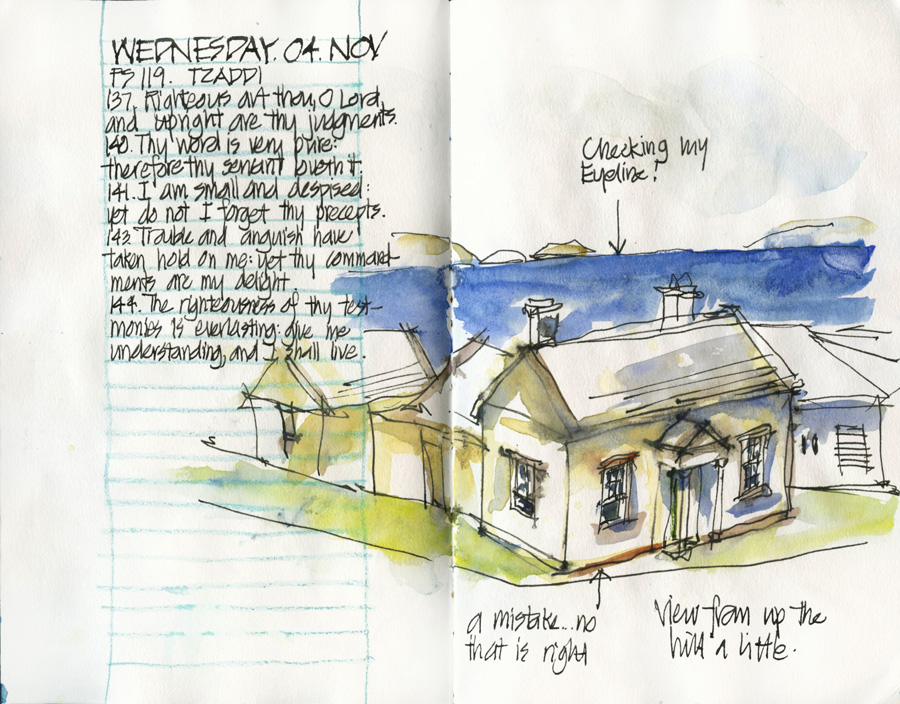 WEDNESDAY. 04. NOV
PS 119. TZADDI
137. Righteous art thou, O Lord,
and upright are thy judgments.
140. Thy word is very pure:
therefore thy servant loveth it.
141. I am small and despised:
yet do not I forget thy precepts.
143. Trouble and anguish have
taken hold on me: yet thy command-
ments are my delight.
144. The righteousness of thy test-
monies is everlasting: give me
understanding, and I shall live.
Checking my
Eyeline!
a mistake...no
that is right
View from up the
hill a little.